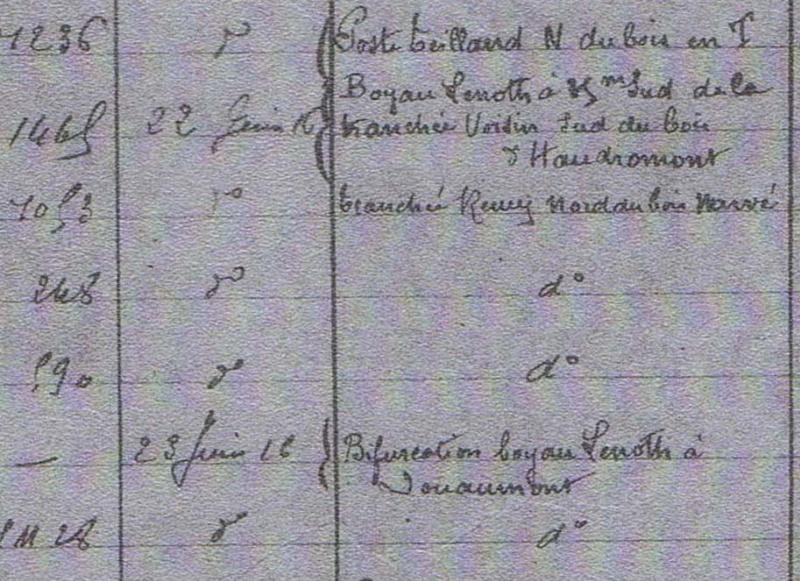 1236 d° Poste Teilland N du bois en T
Boyau Lenoth à 25m Sud de la
1445 22 Juin 16 tranchée Verdin Sud du bois
d'Haudromont
1053 d° tranchée Remy nord du bois Navré
248 d° d°
590 d° d°
— 23 Juin 16 Bifurcation boyau Lenoth à
Douaumont
d° d°